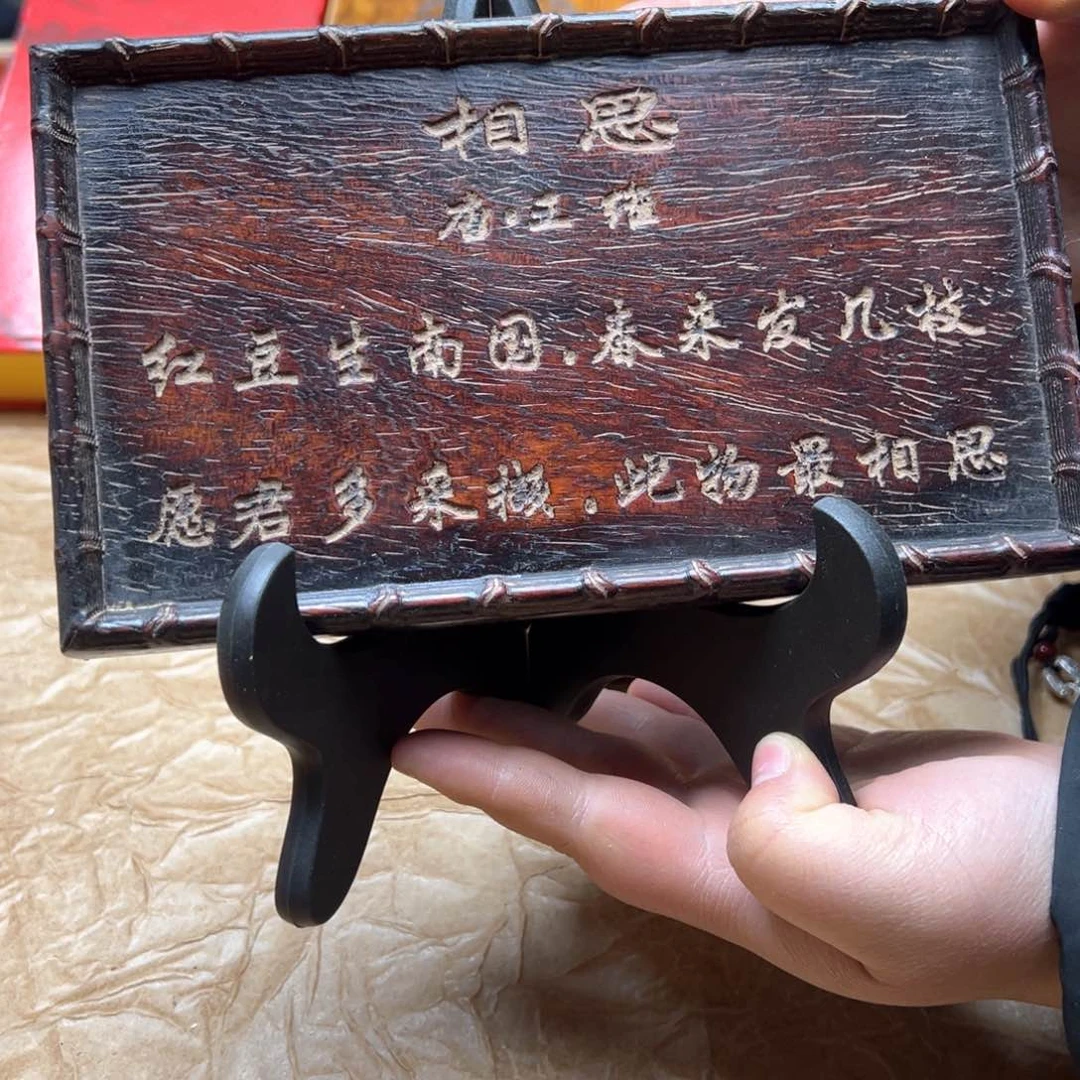 相思
唐·王维
红豆生南国.春来发几枝
愿君多采撷.此物最相思